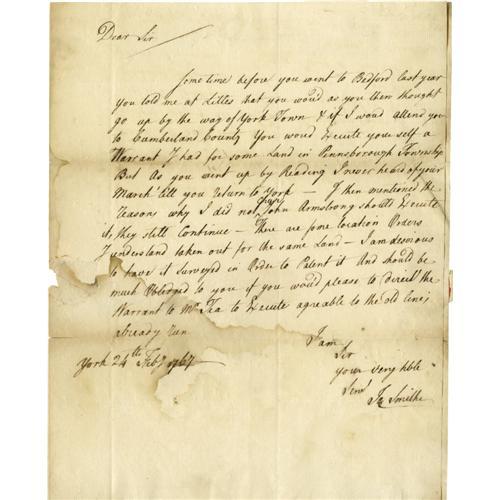 Dear Sir
Sometime before you went to Bedford last year
you told me at Litles that you woud as you then thought
go up by the way of York Town & if I woud attend you
to Cumberland County you woud Execute your self a
Warrant I had for some Land in Pennsborough Township
But as you went up by Reading I never heard of your
March till you Return to York — I then mentioned the
Reasons why I did not John Armstrong should Execute
it, they still Continue — There are some location Orders
I understand taken out for the same Land — I am desirous
to have it surveyed in Order to Patent it And should be
much Obledged to you if you would please to direct the
Warrant to Mr. Tea to Execute agreable to the old lines
already Run
I am
Sir
your very hble
Servt
York 24th Febr 1767
Ja Smith